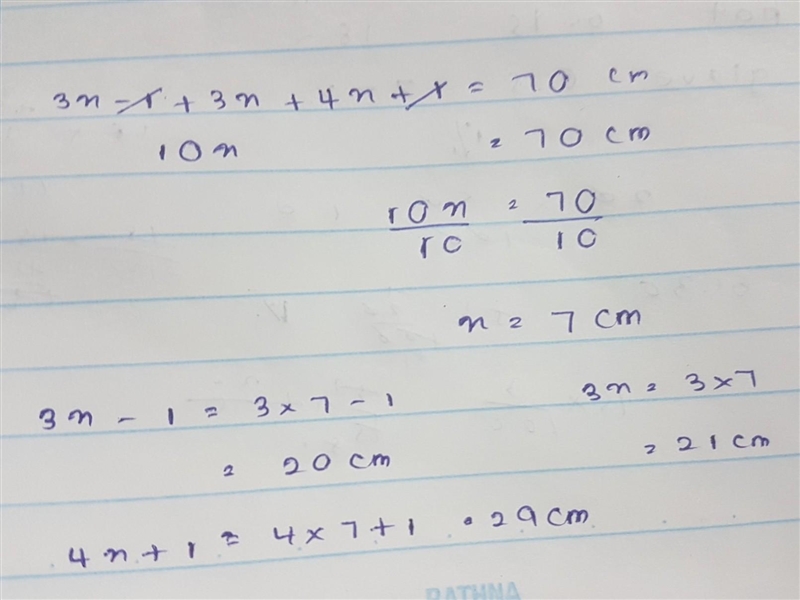 3x - 1 + 3x + 4x + 1 = 70 cm
10x = 70 cm
10x/10 = 70/10
x = 7 cm
3x - 1 = 3 × 7 - 1
= 20 cm
3x = 3 × 7
= 21 cm
4x + 1 = 4 × 7 + 1 = 29 cm
RATHNA